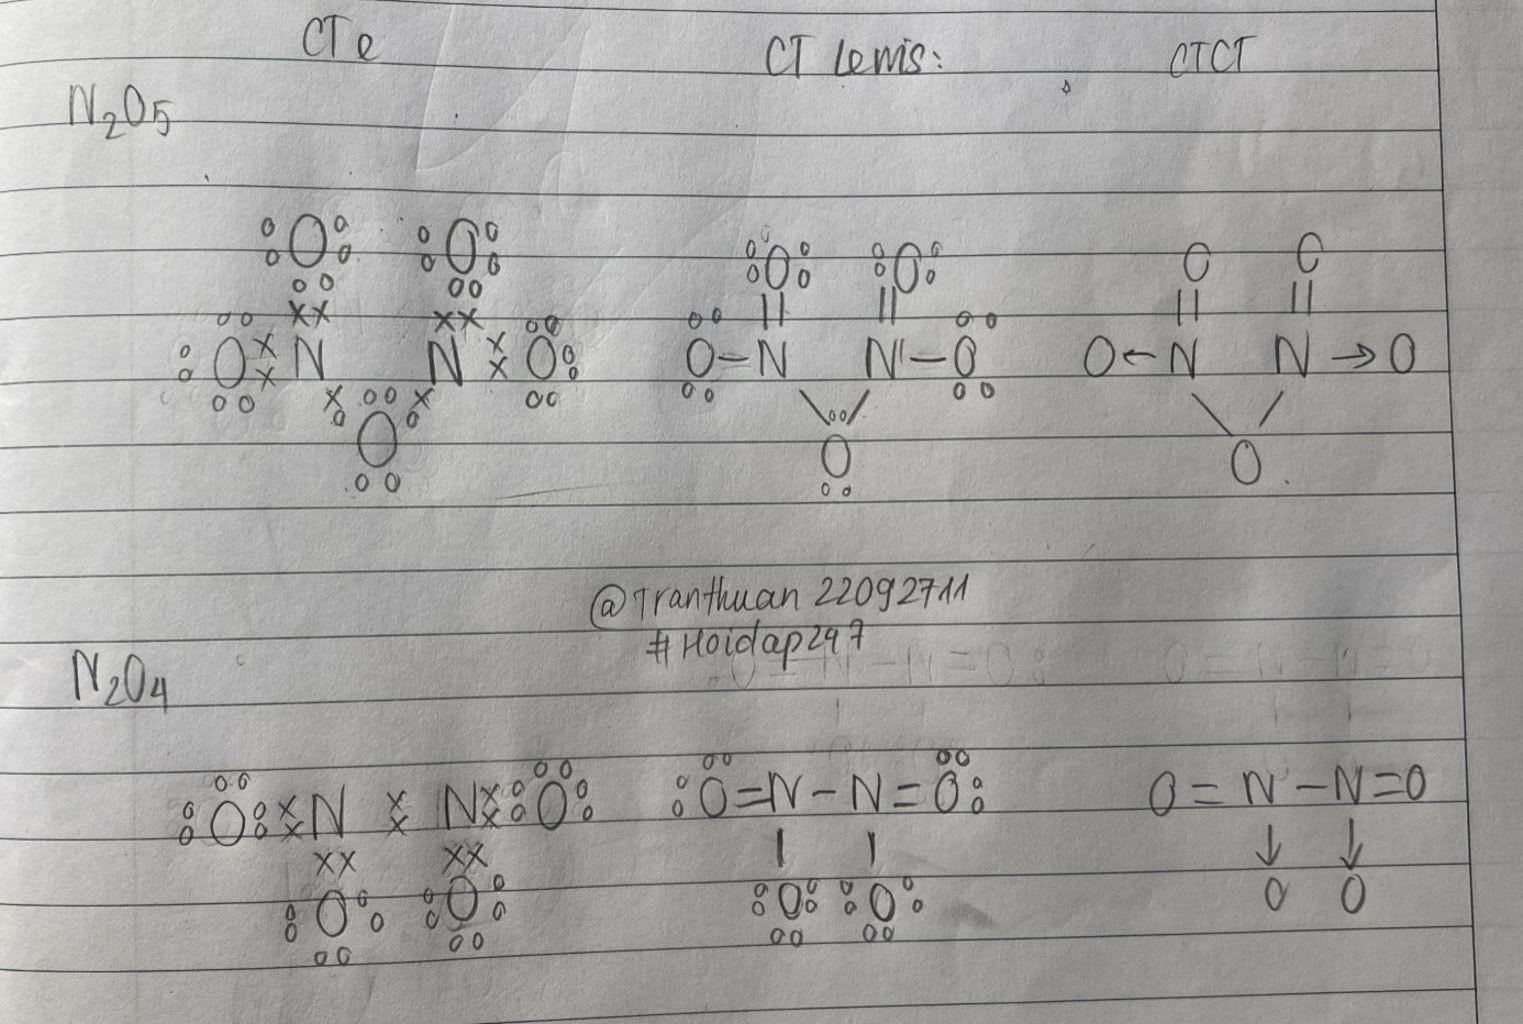 CTe CT Lewis: CTCT
N₂O₅
O O O O C C
O N N O O–N N–O O←N N→O
O O O
@Tranthuan 22092711
#Hoidap247
N₂O₄
O N N O O=N–N=O O=N–N=O
O O O O ↓ ↓
O O